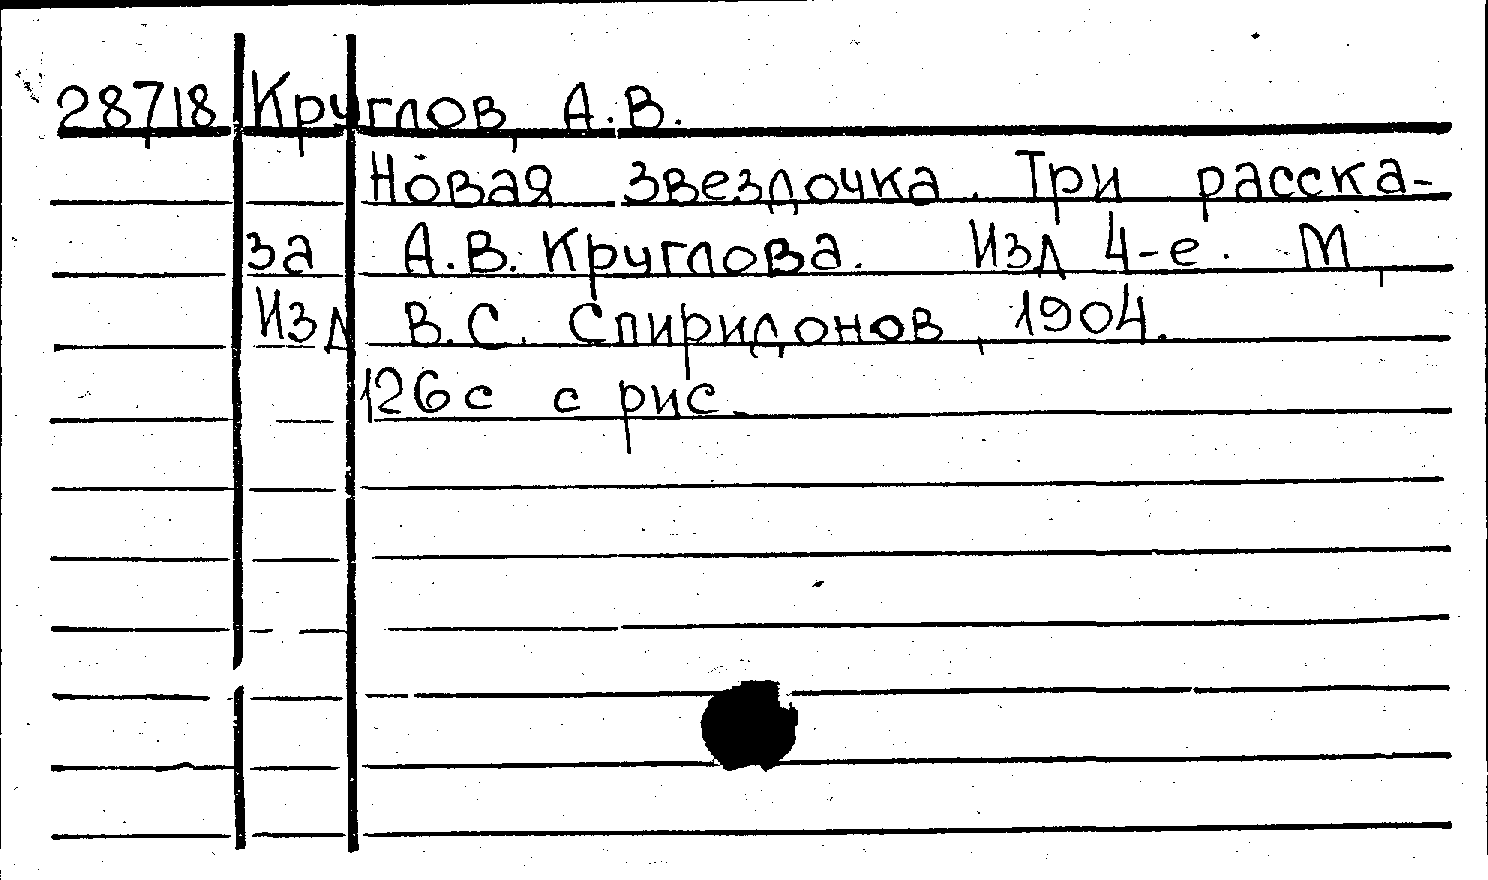 28718 Круглов, А.В.
Новая звездочка. Три расска-
за А.В. Круглова. Изд 4-е. М,
Изд В.С. Спиридонов, 1904.
126с с рис.